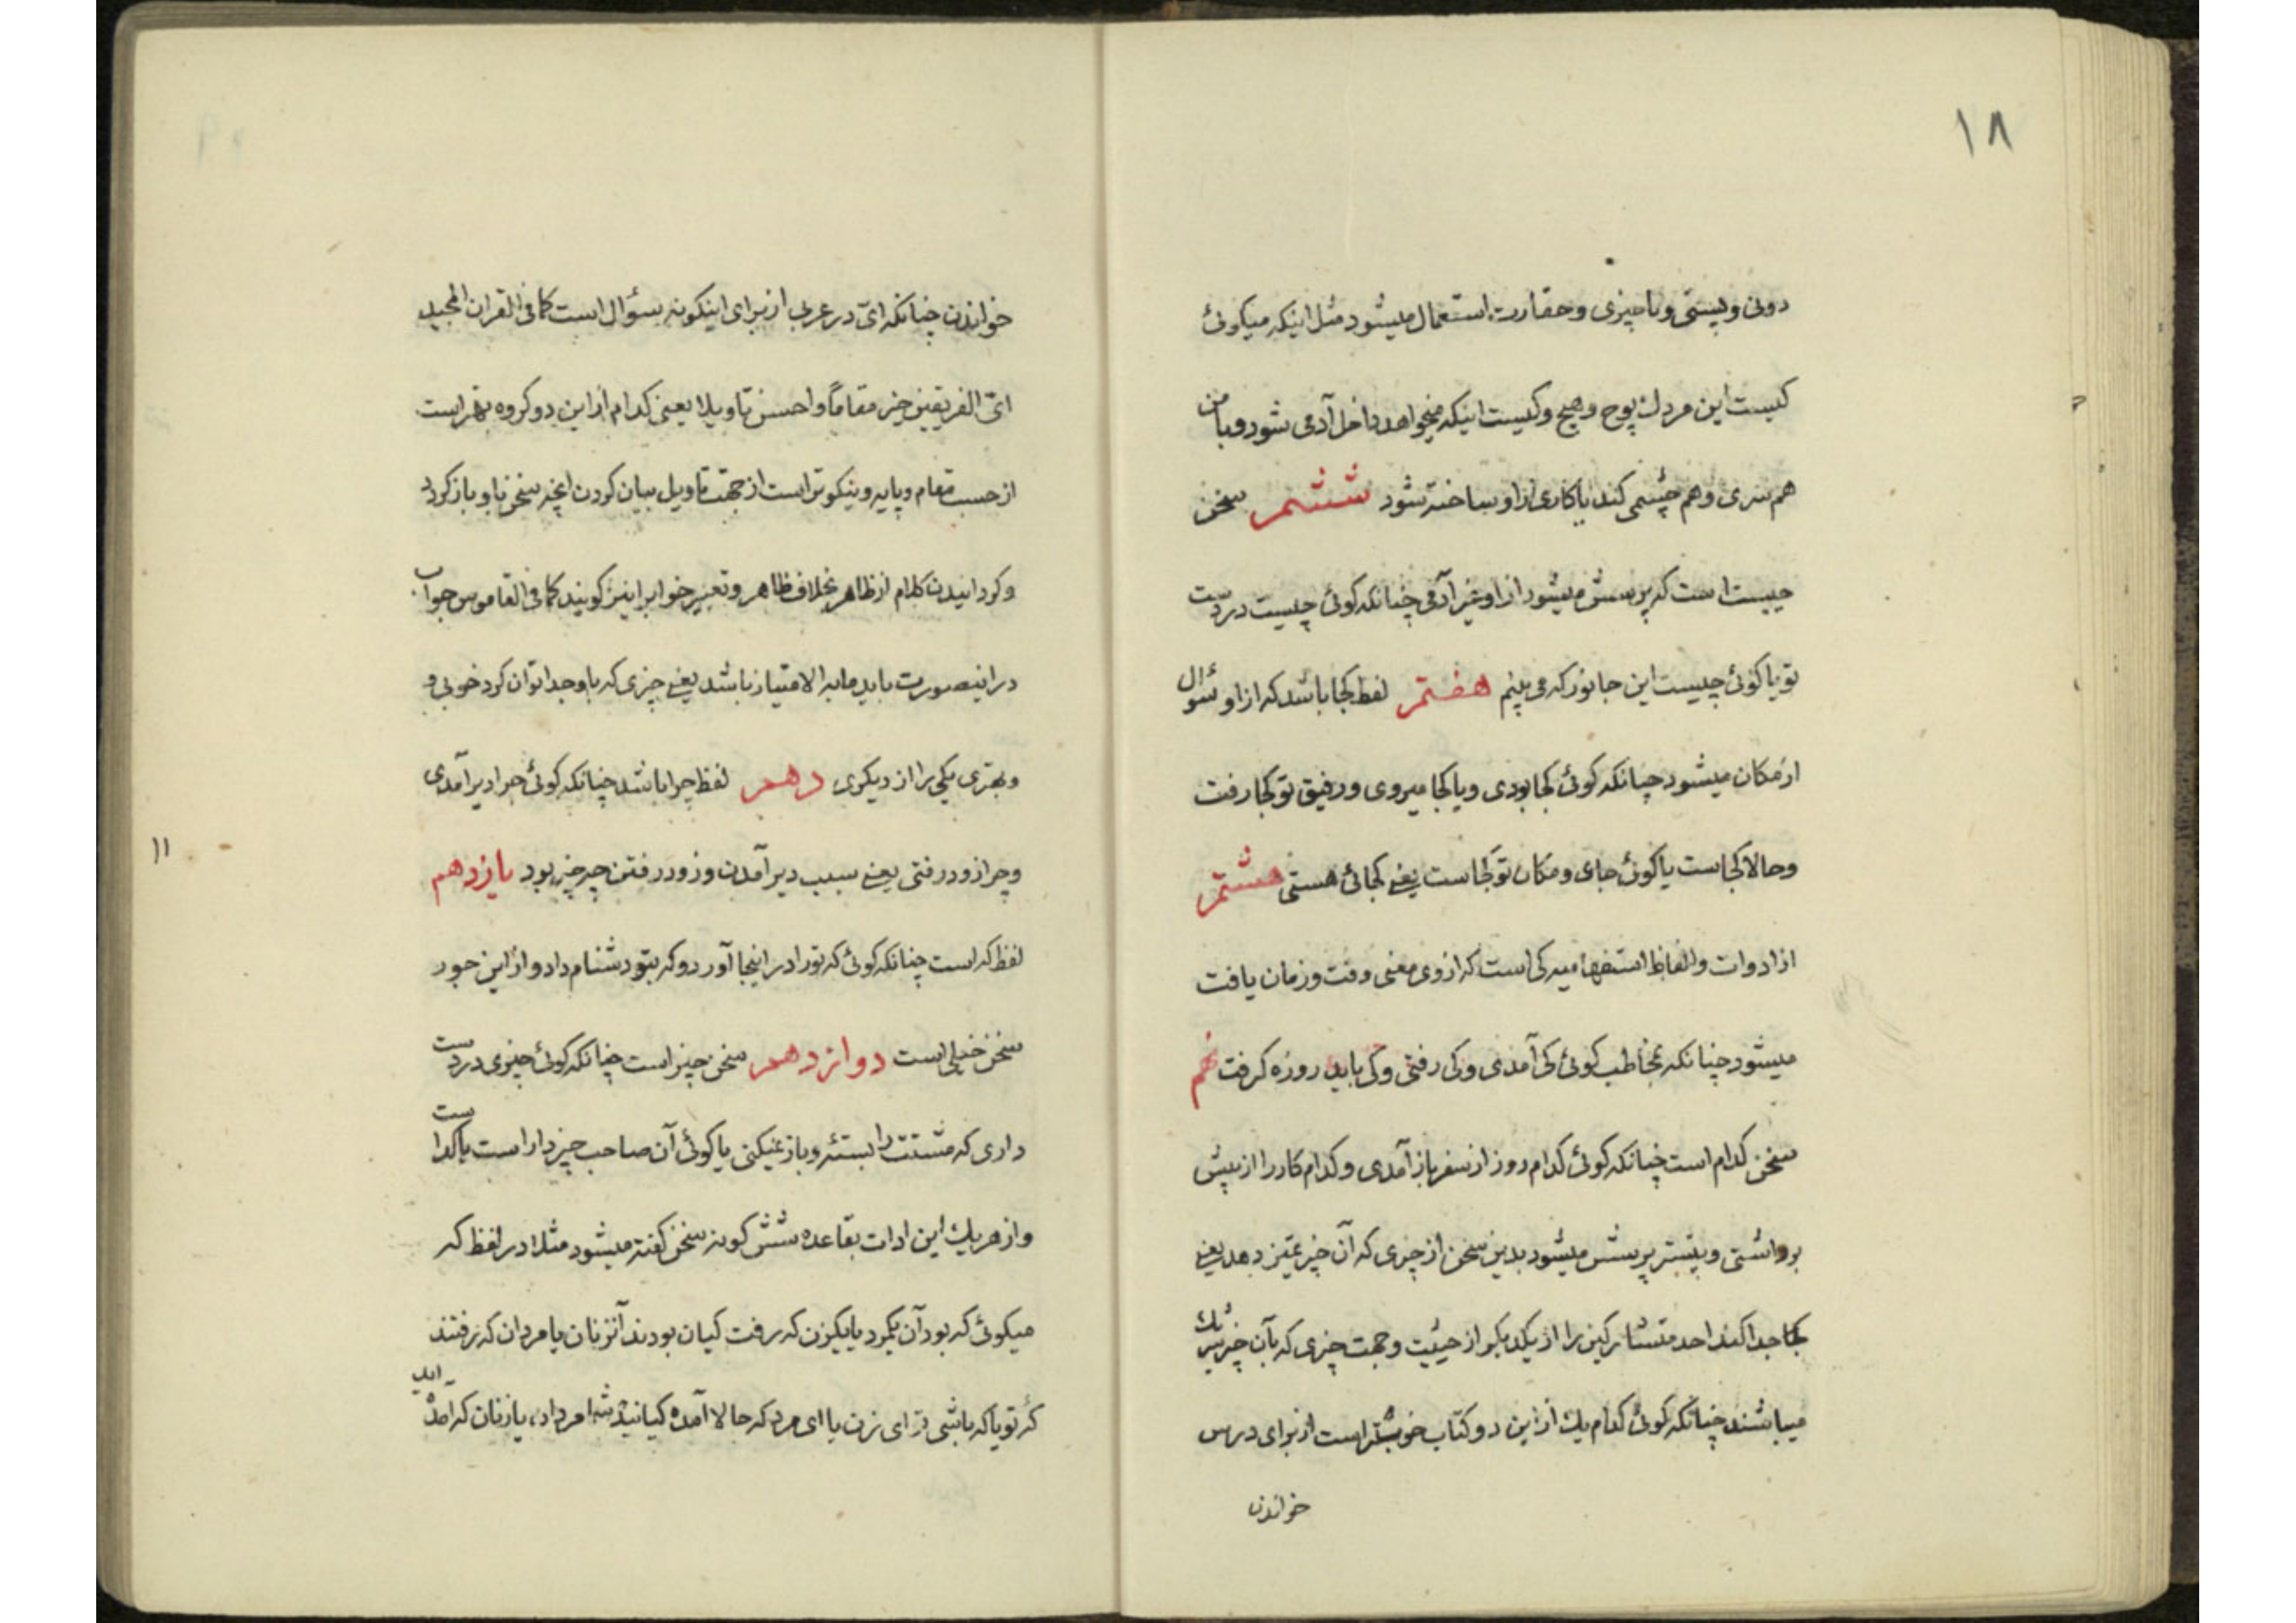 ١٨
دونی و پستی و ناچیزی و حقارت استعمال میشود مثل اینکه میکوئی
کیست این مردك پوچ و هیچ و کیست اینکه میخواهد داخل آدمی شود و با من
هم سری و هم چشمی کند یا کاری از او ساخته شود ششم سخن
چیست است که پرسش میشود از او غیر آدمی چنانکه کوئی چیست در دست
تو یا کوئی چیست این جانور که می بینم هفتم لفظ کجا باشد که از او سؤال
از مکان میشود چنانکه کوئی کجا بودی و یا کجا میروی و رفیق تو کجا رفت
و حالا کجاست یا کوئی جای و مکان تو کجاست یعنی کجائی هستی هشتم
از ادوات و الفاظ استفهامیه کی است که از وی معنی وقت و زمان یافت
میشود چنانکه بمخاطب کوئی کی آمدی و کی رفتی و کی باید روزه کرفت نهم
سخن کدام است چنانکه کوئی کدام روز از سفر باز آمدی و کدام کار را از پیش
برداشتی و بیشتر پرسش میشود بدین سخن از چیزی که آن چیز تمیز دهد یعنی
جدا کند احد متشارکین را از یکدیکر از حیثیت و جهت چیزی که بآن چیز شریك
میباشند چنانکه کوئی کدام یك از این دو کتاب خوبتر است از برای درس
خواندن
خواندن چنانکه ایّ در عربی از برای اینکونه سؤال است کما فی القران المجید
ایّ الفریقین خیر مقاماً و احسن تاویلا یعنی کدام از این دو کروه بهتر است
از حسب مقام و پایه و نیکوتر است از جهت تاویل بیان کردن انچه سخن باو باز کردد
و کردانیدن کلام از ظاهر بخلاف ظاهر و تعبیر خواب را نیز کویند کما فی القاموس جواب
در اینصورت باید ما به الامتیاز باشد یعنی چیزی که باو جدا توان کرد خوبی و
و بهتری یکی را از دیکری دهم لفظ چرا باشد چنانکه کوئی چرا دیر آمدی
و چرا زود رفتی یعنی سبب دیر آمدن و زود رفتن چه چیز بود یازدهم
لفظ که است چنانکه کوئی که تورا در اینجا آورد و که بتو دشنام داد و از این جور
سخن خیلی است دوازدهم سخن چیز است چنانکه کوئی چیزی در دست
داری که مشتت را بستهٔ و باز نمیکنی یا کوئی آن صاحب چیز دار است یا کداست
و از هر یك این ادات بقاعده شش کونه سخن کفته میشود مثلا در لفظ که
میکوئی که بود آن یکمرد یا یکزن که رفت کیان بودند آنزنان یا مردان که رفتند
که تو یا که باشی تو ای زن یا ای مرد که حالا آمدهٔ کیانید شما مردان یا زنان که آمده اید
١١